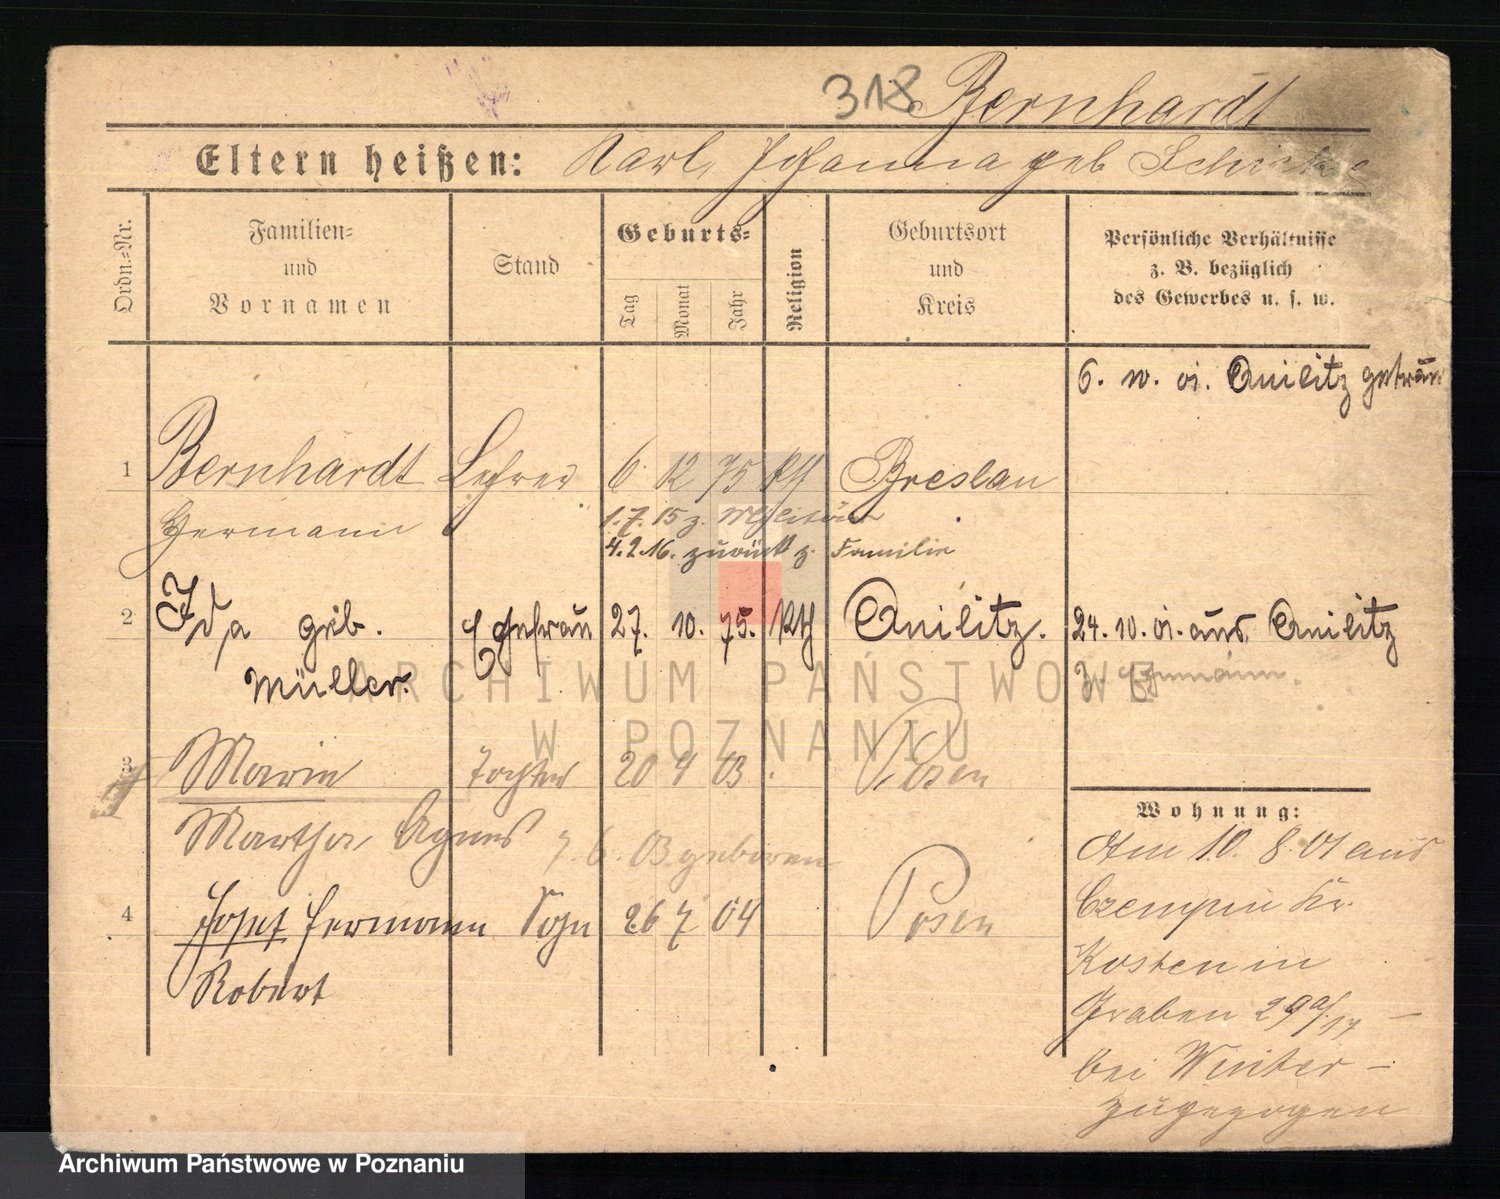 318 Bernhardt
Eltern heißen: Karl, Johanna geb
Ordn.-Nr.
Familien-
und
Vornamen
Stand
Geburts-
Tag
Monat
Jahr
Religion
Geburtsort
und
Kreis
Persönliche Verhältnisse
z. B. bezüglich
des Gewerbes u. s. w.
6. 10. 01. Quilitz getrau
1 Bernhardt Lehrer 6 12 75 kth Breslau
Hermann 1.7.15 z. Militär
4.2.16. zurück z. Familie
2 Ida geb. Ehefrau 27. 10. 75. kth Quilitz. 24. 10. 01. aus Quilitz
Müller. z. Ehemann.
3 Marie Tochter 20 4 03. Posen
Martha Agnes 7. 6. 03 geboren
4 Josef Hermann Sohn 26 7 04 Posen
Robert
Wohnung:
Am 10. 8. 01 aus
Czempin Kr.
Kosten in
Graben 29a/17 -
bei Winter -
zugezogen
ARCHIWUM PAŃSTWOWE
W POZNANIU
Archiwum Państwowe w Poznaniu